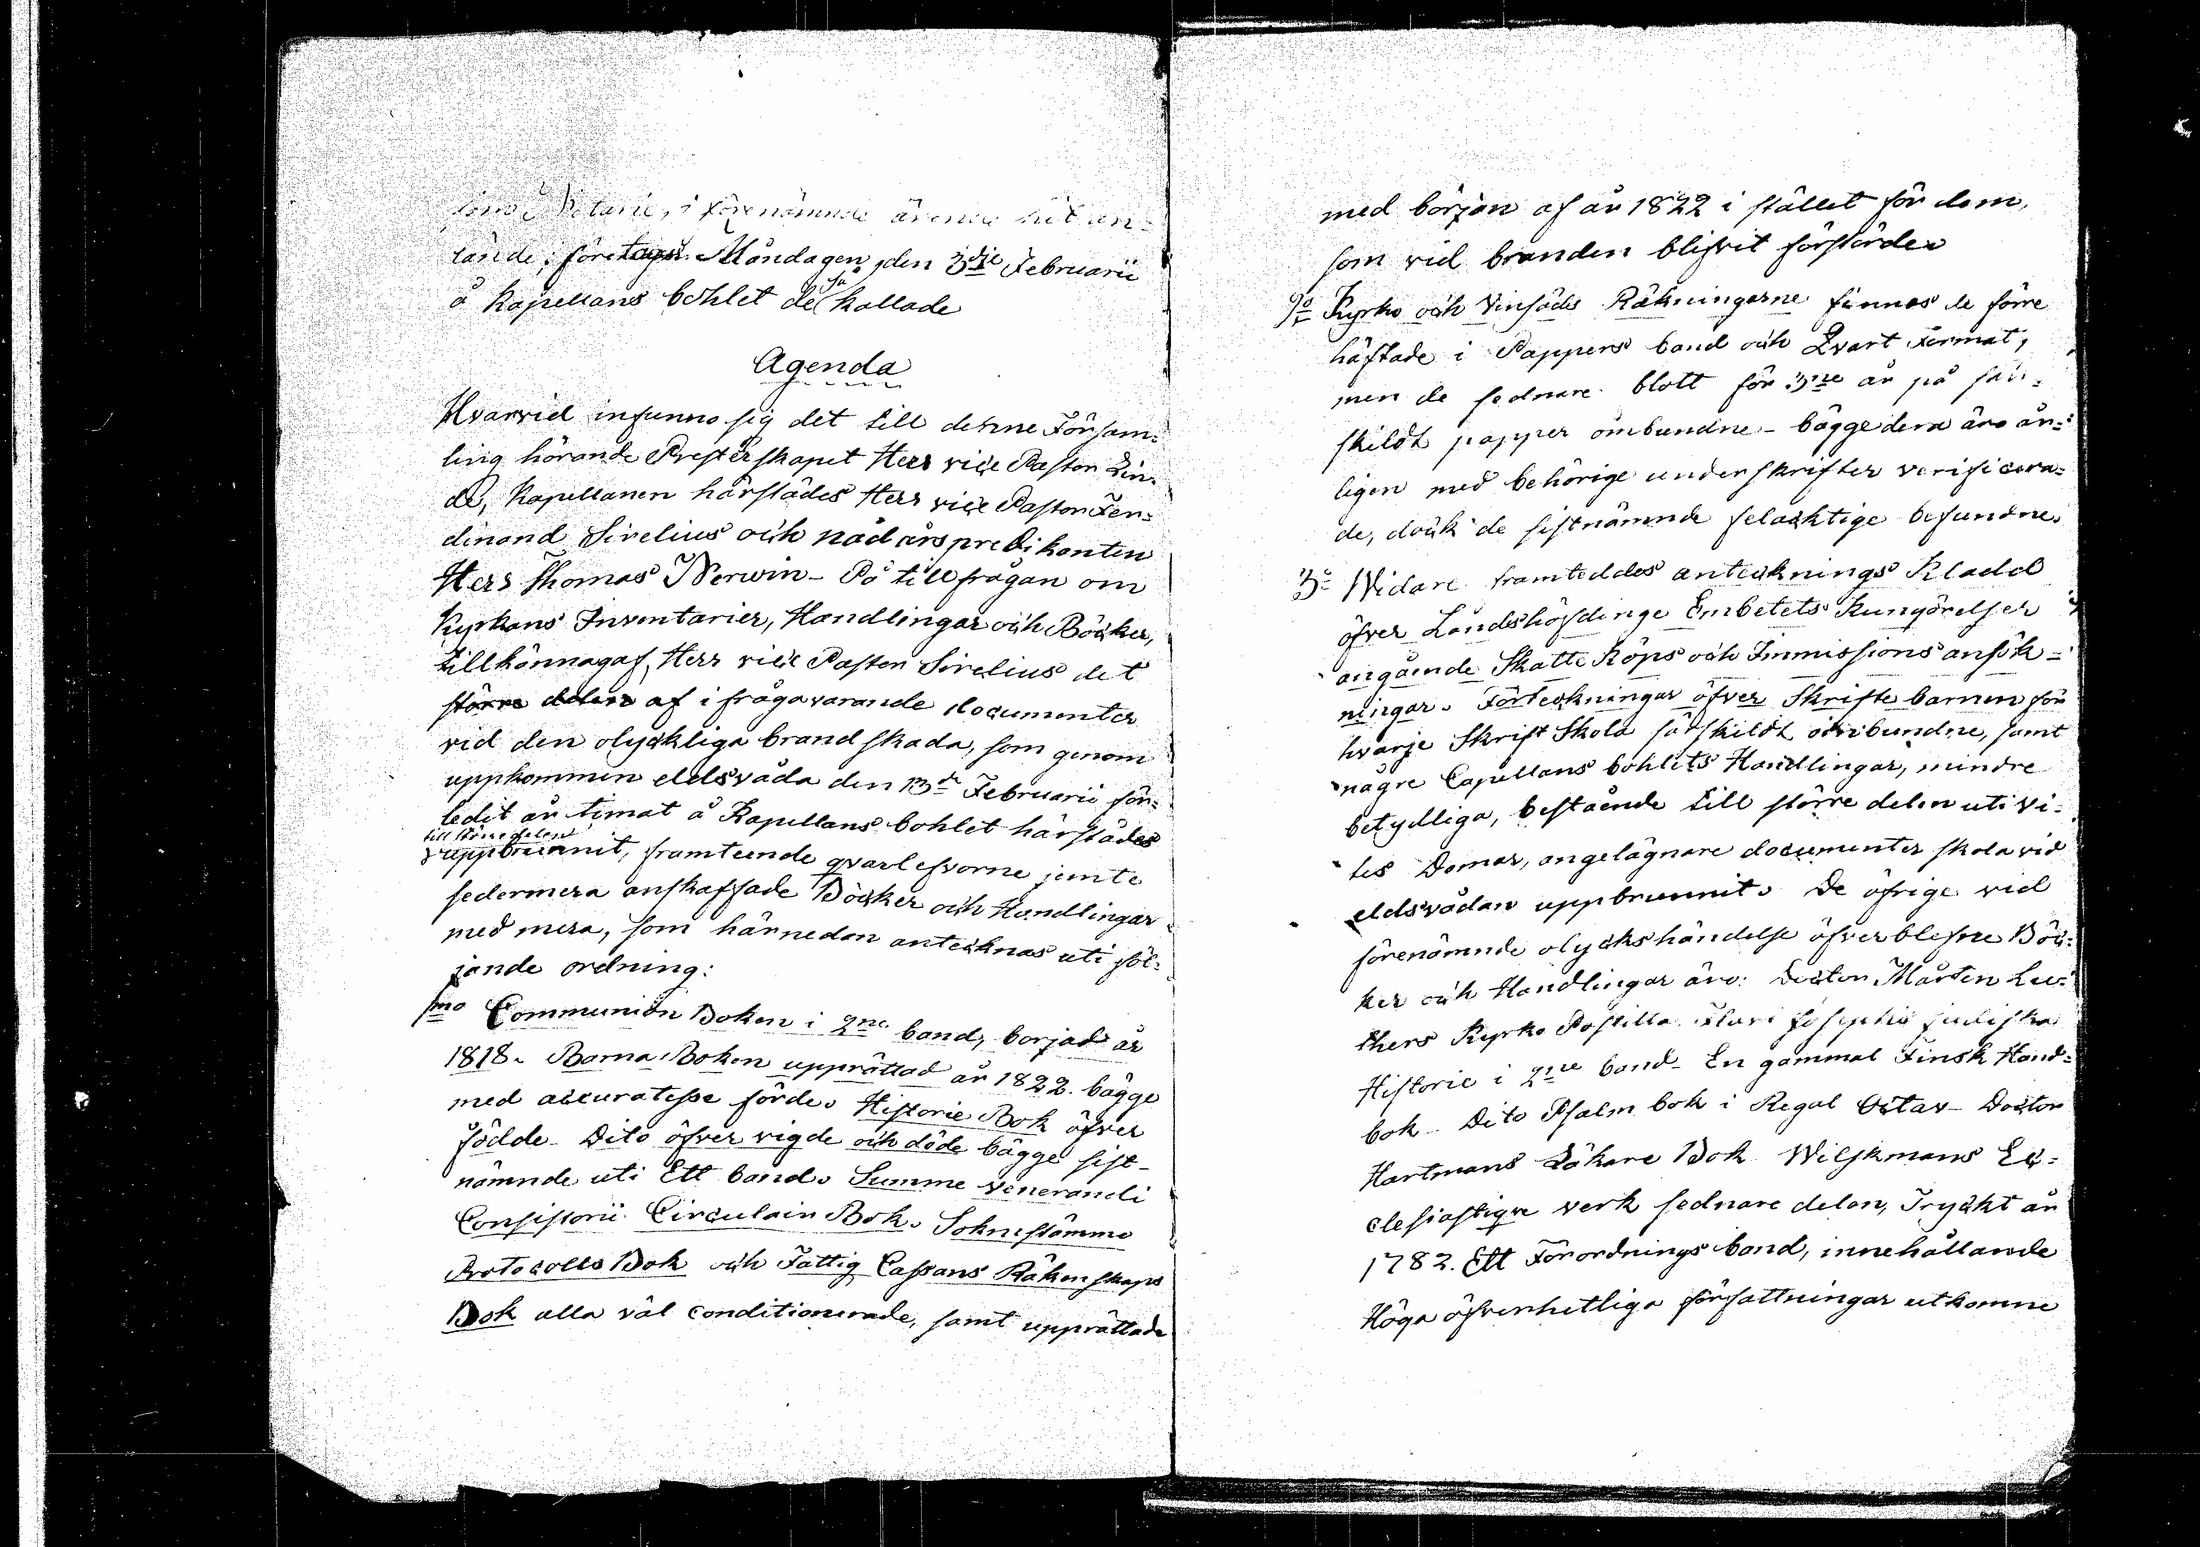 som Notarie, i förenämnde ärende hit an-
lände; företags Måndagen, den 3die Februarii
å Kapellans bohlet de så kallade
Agenda
Hvarvid infunno sig det till denne Försam-
ling hörande Presterskapet Herr vice Pastor Lin-
de, Kapellanen härstädes Herr vice Pastor Fer-
dinand Sirelius och nådårspredikanten
Herr Thomas Werwin - På tillfrågan om
Kyrkans Inventarier, Handlingar och Böcker,
tillkännagaf, Herr vice Pastor Sirelius det
större delen af i frågavarande documenter
vid den olyckliga brandskada, som genom
uppkommen eldsvåda den 13de Februarii för-
ledit år timat å Kapellans bohlet härstädes
till större delen
uppbrunnit, framteende qvarlefvorne jemte
sedermera anskaffade Böcker och Handlingar
med mera, som härnedan antecknas uti föl-
jande ordning:
1mo Communion Boken i 2ne band, borjad år
1818. Barna Boken upprättad år 1822. bägge
med accuratesse förde. Historie Bok öfver
födde - Dito öfver vigde och döde bägge sist-
nämnde uti Ett band. Summe Venerandi
Consistorii Circulair Bok. Soknestämmo
Protocolls Bok och Fattig Cassans Räkenskaps
Bok alla väl conditionerade, samt upprättade
med början af år 1822 i stället för dem,
som vid branden blifvit förstörde
2o Kyrko och Vinsäds Räkningarne finnas de förre
häftade i Pappers band och Qvart Format,
men de sednare blott för 3ne år på sär-
skildt papper ombundne - bäggedera äro år-
ligen med behörige underskrifter verificera-
de, dock de sistnämnde felacktige befundne.
3o Widare framteddes antecknings Kladd
öfver Landshöfdinge Embetets Kungörelser
angående Skatte Köps och Immissions ansök-
ningar. Förteckningar öfver Skrifte barnen för
hvarje Skrift Skola särskildt ombundne, samt
någre Capellans bohlets Handlingar, mindre
betydliga, bestående till större delen uti Vi-
tes Domar, angelägnare documenter skola vid
eldsvådan uppbrunnit. De öfrige vid
förenämnde olyckshändelse öfverblefne Böc-
ker och Handlingar äro: Doctor Mårten Lu-
thers Kyrko Postilla Flavi Josephi judiska
Historie i 2ne band - En gammal Finsk Hand-
bok - Dito Psalm bok i Regal Octav - Doctor
Hartmans Läkare Bok Wilskmans Ec-
clesiastique verk sednare delen, Tryckt år
1782. Ett Förordnings band, innehållande
Höga öfverhetliga författningar utkomne